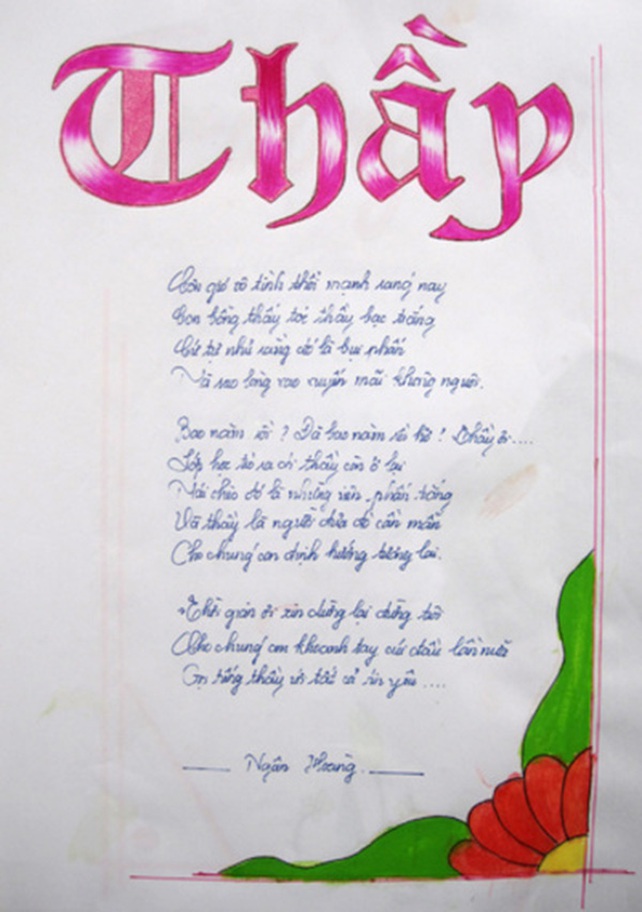 Thầy
Cơn gió vô tình thổi mạnh sáng nay
Con bỗng thấy tóc thầy bạc trắng
Cứ tự nhủ rằng đó là bụi phấn
Mà sao lòng xao xuyến mãi không nguôi.
Bao năm rồi ? Đã bao năm rồi hở ! Thầy ơi....
Lớp học trò ra đi thầy còn ở lại
Mái chèo đó là những viên phấn trắng
Và thầy là người đưa đò cần mẫn
Cho chúng con định hướng tương lai.
Thời gian ơi xin dừng lại đừng trôi
Cho chúng em khoanh tay cúi đầu lần nữa
Gọi tiếng thầy với tất cả tin yêu ....
Ngân Hoàng